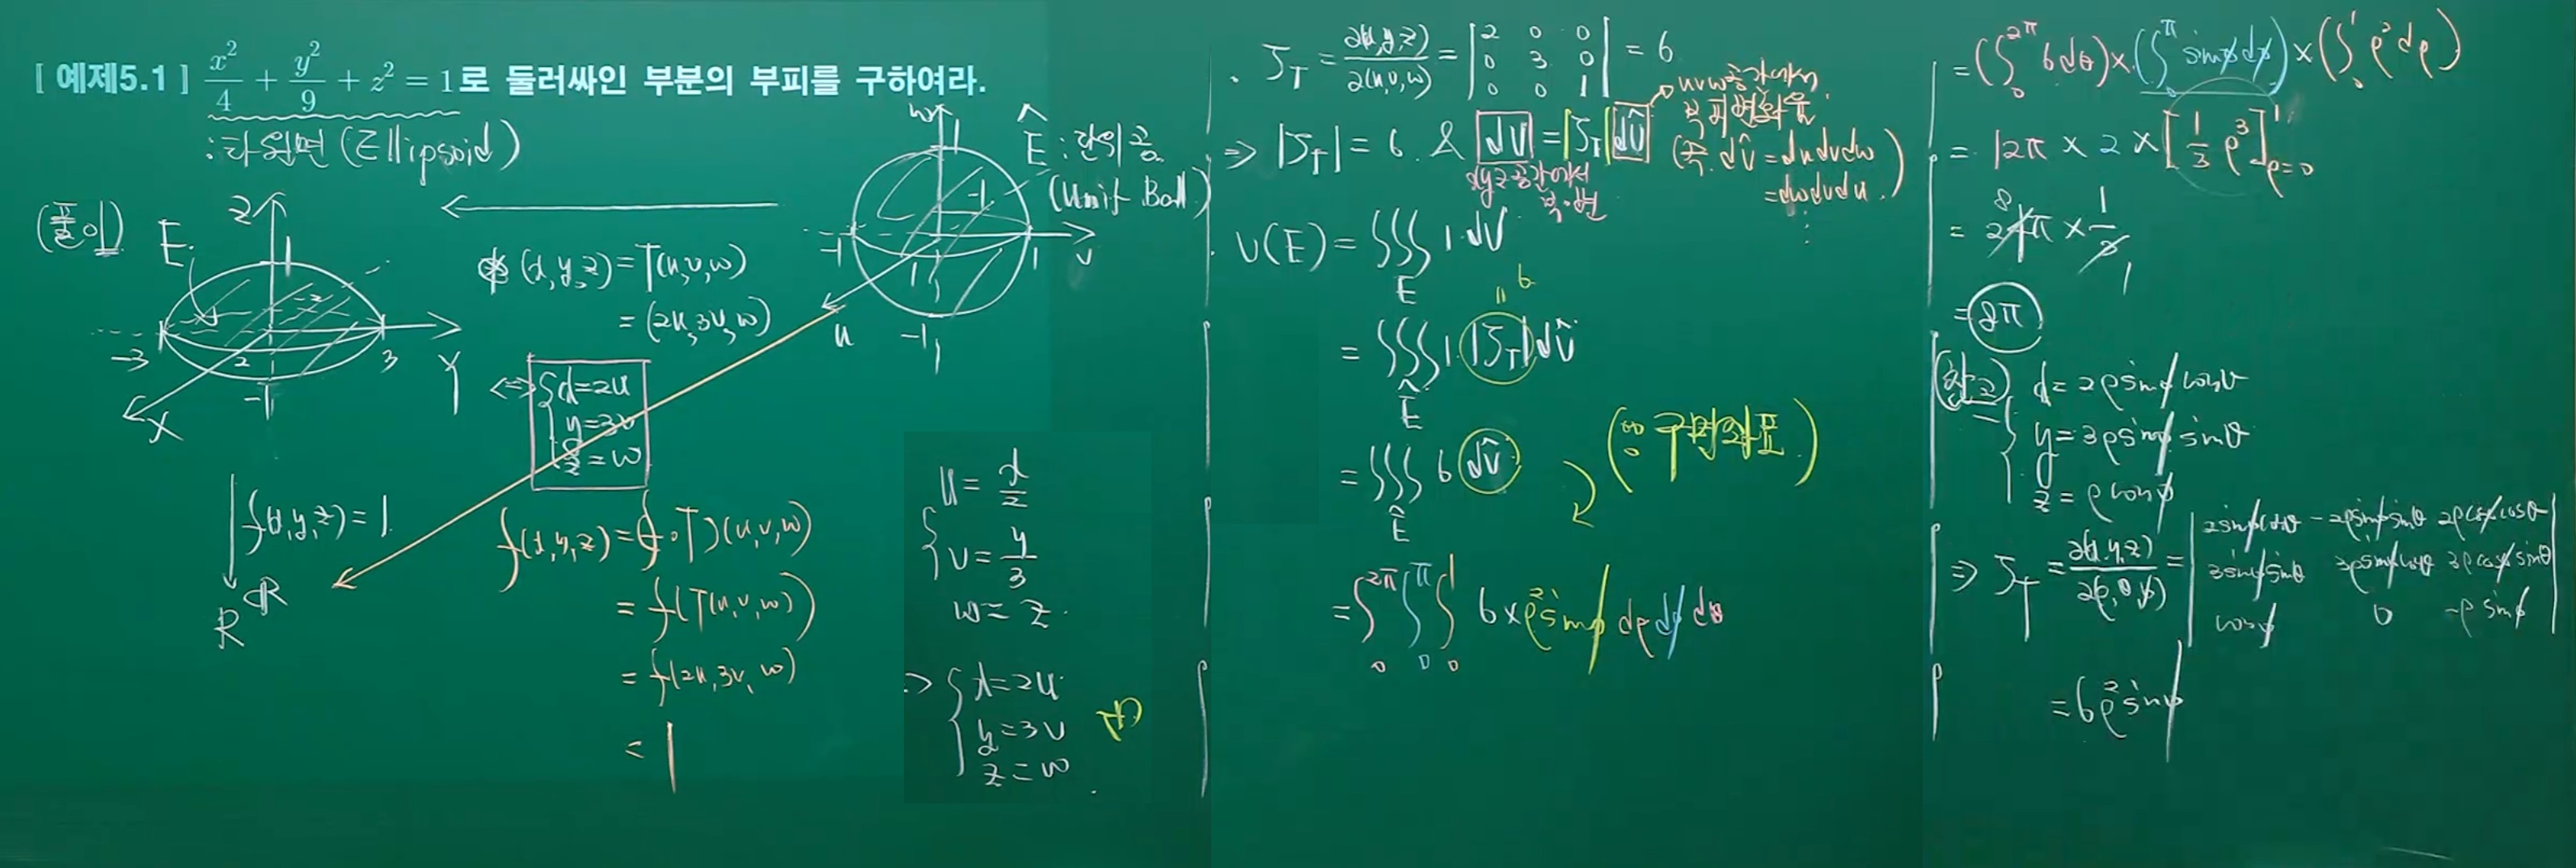 [ 예제5.1 ] x²/4 + y²/9 + z² = 1로 둘러싸인 부분의 부피를 구하여라.
: 타원면 (Ellipsoid)
(풀이)
E
Z
1
-2
-3
2
3
Y
-1
X
f(x,y,z) = 1
R
ℝ
(x,y,z) = T(u,v,w)
= (2u, 3v, w)
⇔ { x = 2u
y = 3v
z = w
f(x,y,z) = (f∘T)(u,v,w)
= f(T(u,v,w))
= f(2u, 3v, w)
= 1
w
1
Ê : 단위공
(Unit Ball)
-1
-1
1
1
v
u
-1
{ u = x/2
v = y/3
w = z.
⇒ { x = 2u
y = 3v
z = w
· J_T = ∂(x,y,z)/∂(u,v,w) = | 2 0 0 |
| 0 3 0 |
| 0 0 1 | = 6
uvw공간에서
부피변화율
⇒ |J_T| = 6 & dV = |J_T| dV̂
xyz공간에서
(즉. dV̂ = du dv dw
= dw dv du.)
⋮
· V(E) = ∭_E 1 dV
= ∭_Ê 1·|J_T| dV̂
= 6
= ∭_Ê 6 dV̂
(∵ 구면좌표)
= ∫₀^{2π} ∫₀^π ∫₀^1 6 × ρ² sinφ dρ dφ dθ
= (∫₀^{2π} 6 dθ) × (∫₀^π sinφ dφ) × (∫₀^1 ρ² dρ)
= 12π × 2 × [1/3 ρ³]_{ρ=0}^1
= 24π × 1/3
8
1
= 8π
(참고) { x = 2ρ sinφ cosθ
y = 3ρ sinφ sinθ
z = ρ cosφ
⇒ J_T = ∂(x,y,z)/∂(ρ,θ,φ) = | 2sinφcosθ -2ρsinφsinθ 2ρcosφcosθ |
| 3sinφsinθ 3ρsinφcosθ 3ρcosφsinθ |
| cosφ 0 -ρ sinφ |
= 6ρ² sinφ